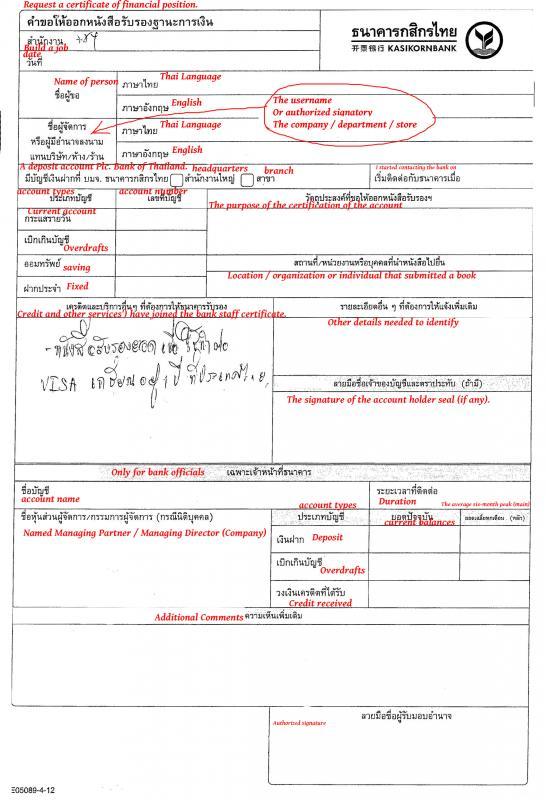 Request a certificate of financial position.
คำขอให้ออกหนังสือรับรองฐานะการเงิน
ธนาคารกสิกรไทย
开泰银行 KASIKORNBANK
สำนักงาน
Build a job
date
วันที่
Name of person
ชื่อผู้ขอ
ภาษาไทย Thai Language
ภาษาอังกฤษ English
The username
Or authorized signatory
The company / department / store
ชื่อผู้จัดการ
หรือผู้มีอำนาจลงนาม
แทนบริษัท/ห้าง/ร้าน
ภาษาไทย Thai Language
ภาษาอังกฤษ English
A deposit account Plc. Bank of Thailand. headquarters branch
I started contacting the bank on
มีบัญชีเงินฝากที่ บมจ. ธนาคารกสิกรไทย สำนักงานใหญ่ สาขา
เริ่มติดต่อกับธนาคารเมื่อ
account types account number
ประเภทบัญชี เลขที่บัญชี วัตถุประสงค์ที่ขอให้ออกหนังสือรับรองฯ
The purpose of the certification of the account
Current account
กระแสรายวัน
เบิกเกินบัญชี
Overdrafts
ออมทรัพย์ saving
สถานที่/หน่วยงานหรือบุคคลที่นำหนังสือไปยื่น
Location / organization or individual that submitted a book
ฝากประจำ Fixed
เครดิตและบริการอื่นๆ ที่ต้องการให้ธนาคารรับรอง รายละเอียดอื่น ๆ ที่ต้องการให้แจ้งเพิ่มเติม
Credit and other services I have joined the bank staff certificate.
Other details needed to identify
VISA
ลายมือชื่อเจ้าของบัญชีและตราประทับ (ถ้ามี)
The signature of the account holder seal (if any).
Only for bank officials เฉพาะเจ้าหน้าที่ธนาคาร
ชื่อบัญชี
account name
ระยะเวลาที่ติดต่อ
Duration
The average six-month peak (main)
account types
ชื่อหุ้นส่วนผู้จัดการ/กรรมการผู้จัดการ (กรณีนิติบุคคล) ประเภทบัญชี ยอดปัจจุบัน
current balances
Named Managing Partner / Managing Director (Company)
เงินฝาก Deposit
เบิกเกินบัญชี
Overdrafts
วงเงินเครดิตที่ได้รับ
Credit received
Additional Comments ความเห็นเพิ่มเติม
ลายมือชื่อผู้รับมอบอำนาจ
Authorized signature
E05089-4-12